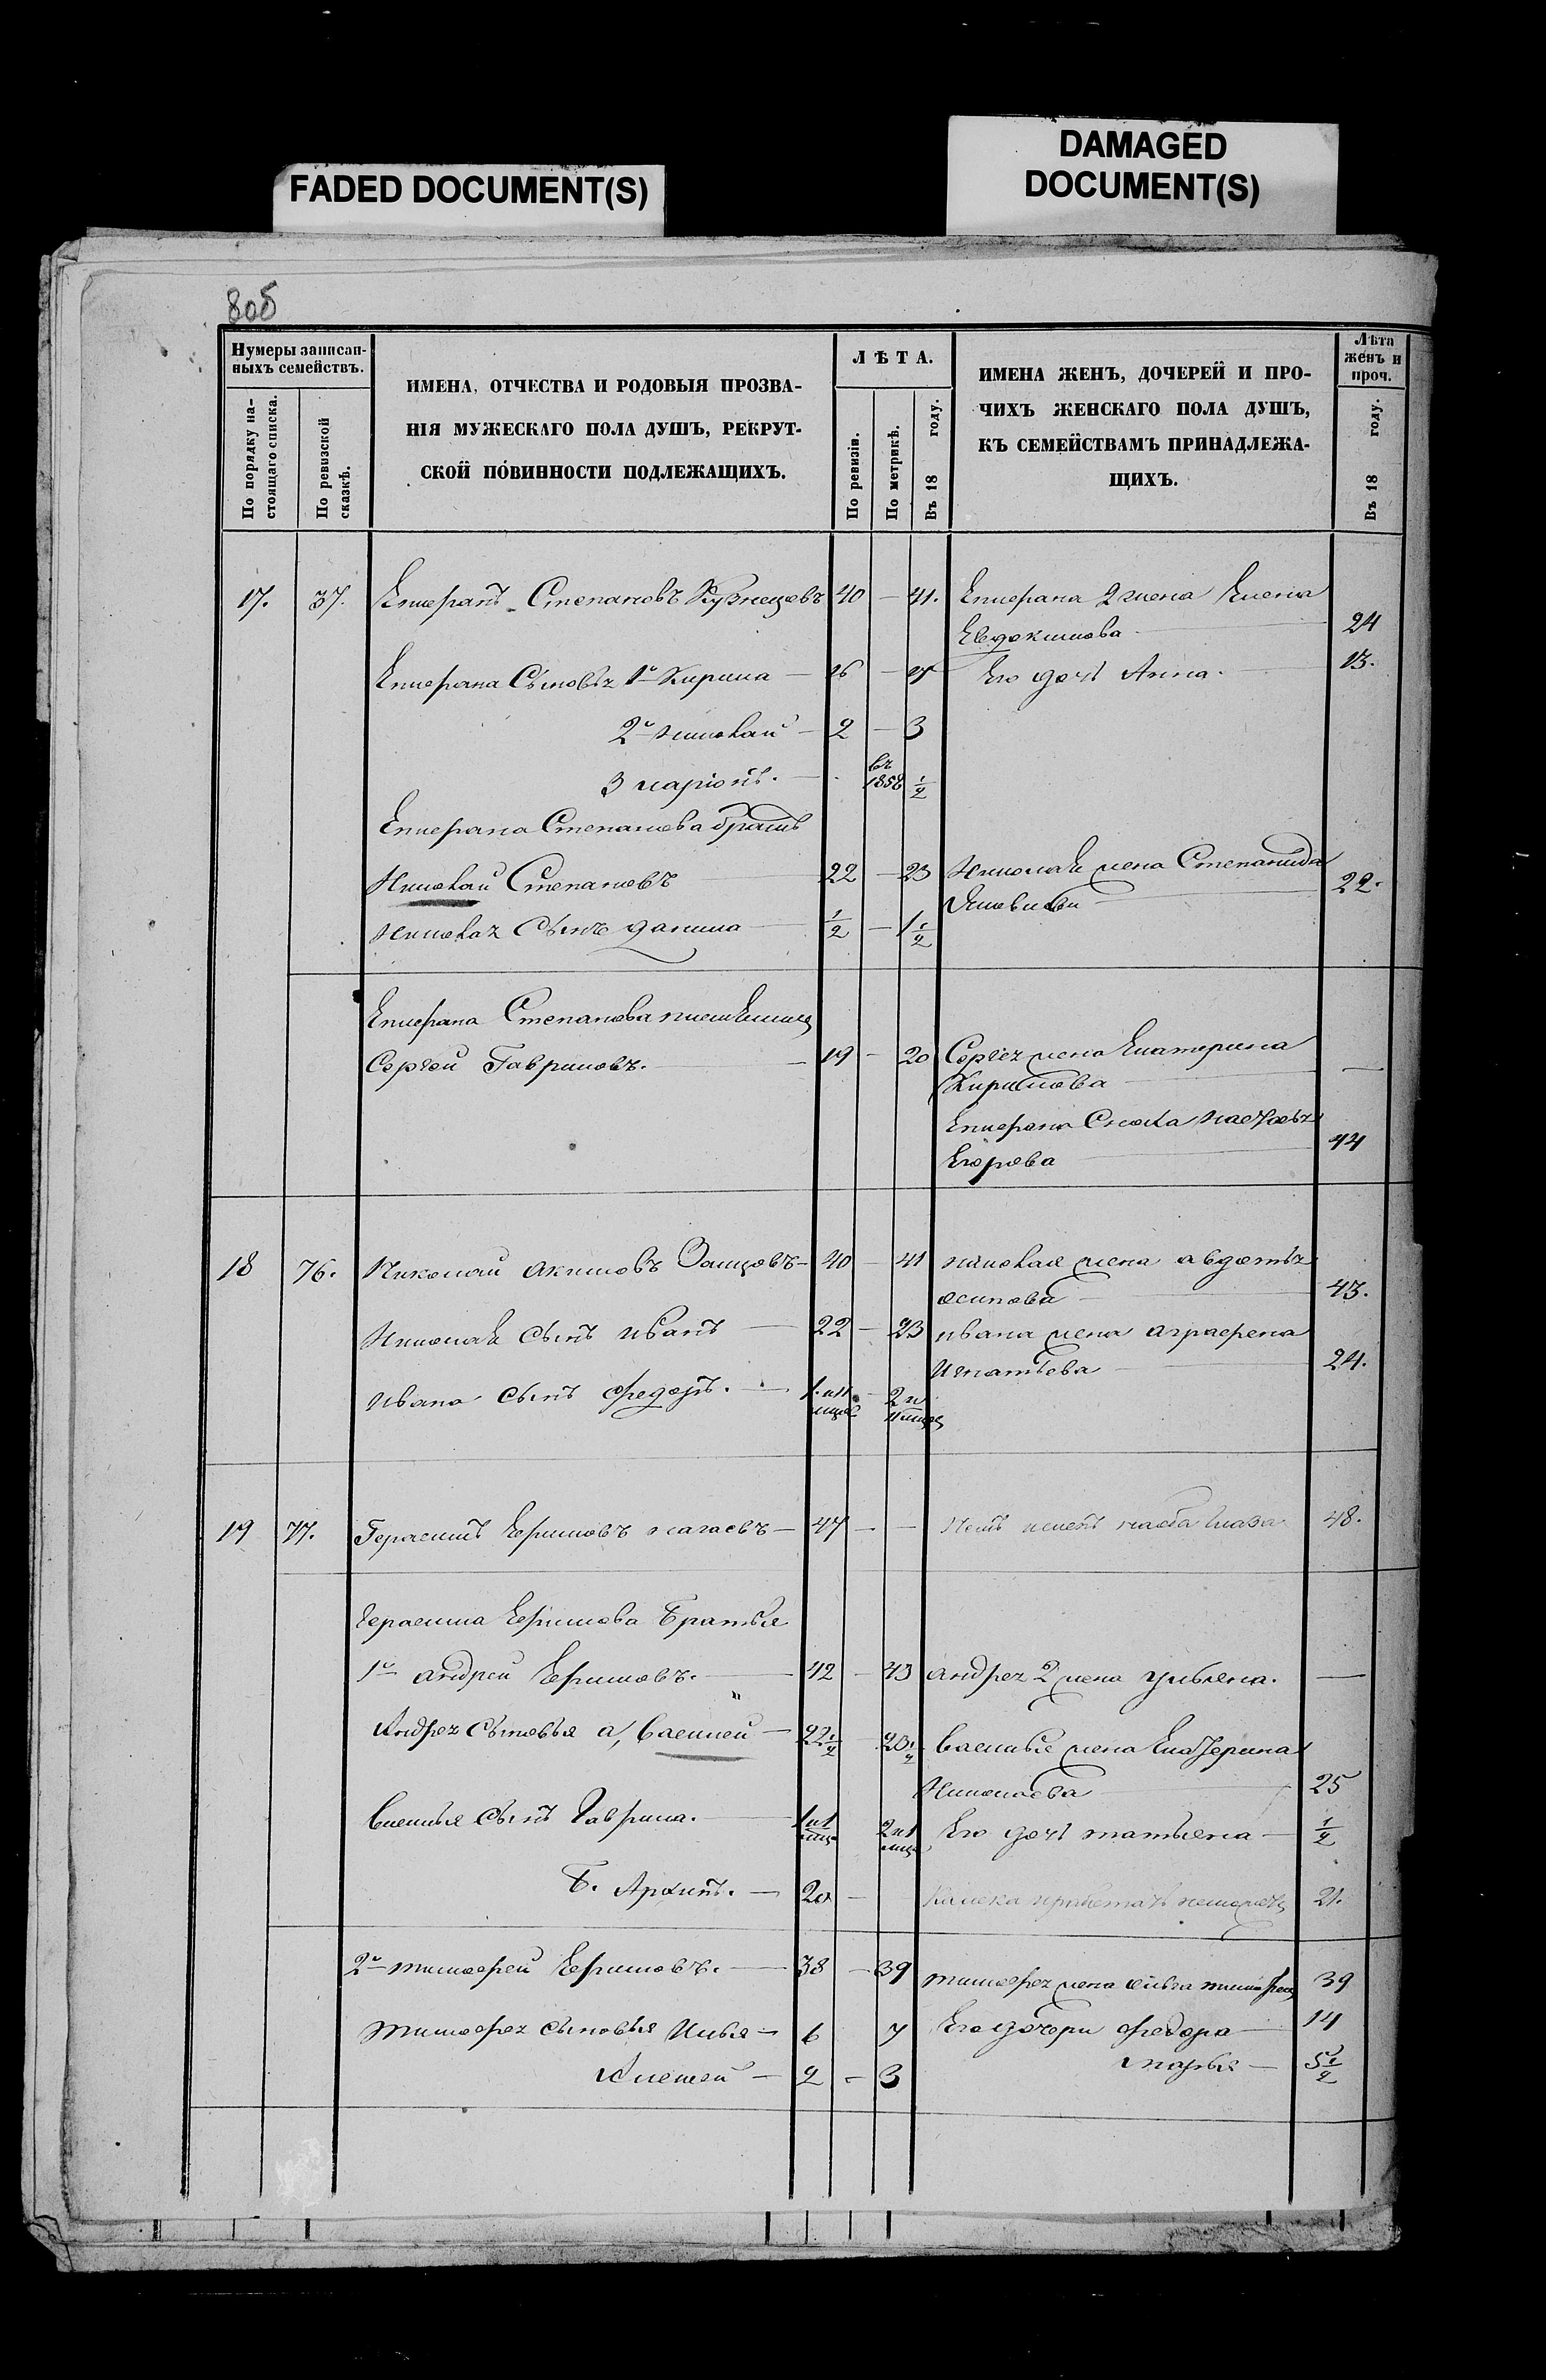 FADED DOCUMENT(S)
DAMAGED
DOCUMENT(S)
80б
Нумеры записан-
ныхъ семействъ.
По порядку на-
стоящаго списка.
По ревизской
сказкѣ.
ИМЕНА, ОТЧЕСТВА И РОДОВЫЯ ПРОЗВА-
НІЯ МУЖЕСКАГО ПОЛА ДУШЪ, РЕКРУТ-
СКОЙ ПОВИННОСТИ ПОДЛЕЖАЩИХЪ.
ЛѢТА.
По ревизіи.
По метрикѣ.
Въ 18 году.
ИМЕНА ЖЕНЪ, ДОЧЕРЕЙ И ПРО-
ЧИХЪ ЖЕНСКАГО ПОЛА ДУШЪ,
КЪ СЕМЕЙСТВАМЪ ПРИНАДЛЕЖА-
ЩИХЪ.
Лѣта
женъ и
проч.
Въ 18 году.
17. 37. Степановъ Кузнецовъ 40 — 41. 2 жена Елена
Евдокимова 24
Сыновья 1й Кирила — 26 — 27 Его дочь Анна. 13.
2й Николай — 2 — 3
3 Ларіонъ. — въ 1858 1/2
Степанова братъ
Николай Степановъ 22 — 23 Николая жена Степанида
22.
Николая Сынъ данила 1/2 — 1 1/2
Степанова племянникъ
Сергей Гавриловъ. 19 — 20 Сергея жена Екатерина
Кирилова —
Сноха
Егорова 44
18 76. Николай акимовъ 40 — 41 николая жена авдотья
осипова 43.
Николая сынъ иванъ 22 — 23 ивана жена аграфена
Игнатьева 24.
ивана сынъ федотъ. 1. и 11 мцов 2 и 11 мцов
19 77. Герасимъ Ефимовъ — 47 — — 48.
герасима Ефимова Братья
1й андрей Ефимовъ. 42 — 43 андрея 2 жена ульяна. —
Андрея Сыновья а, Василей — 22 1/2 23 1/2 Василья жена Екатерина
Николаева 25
Василья сынъ Гаврила. 1 и 1 мцъ 2 и 1 мцъ Его дочь татьяна — 1/2
Б. Архипъ. — 20 — 21.
2й тимофей Ефимовъ. 38 — 39 тимофея жена 39
тимофея сыновья Илья — 6 7 Его дочери федора 14
Алексей — 2 — 3 марья — 5 1/2